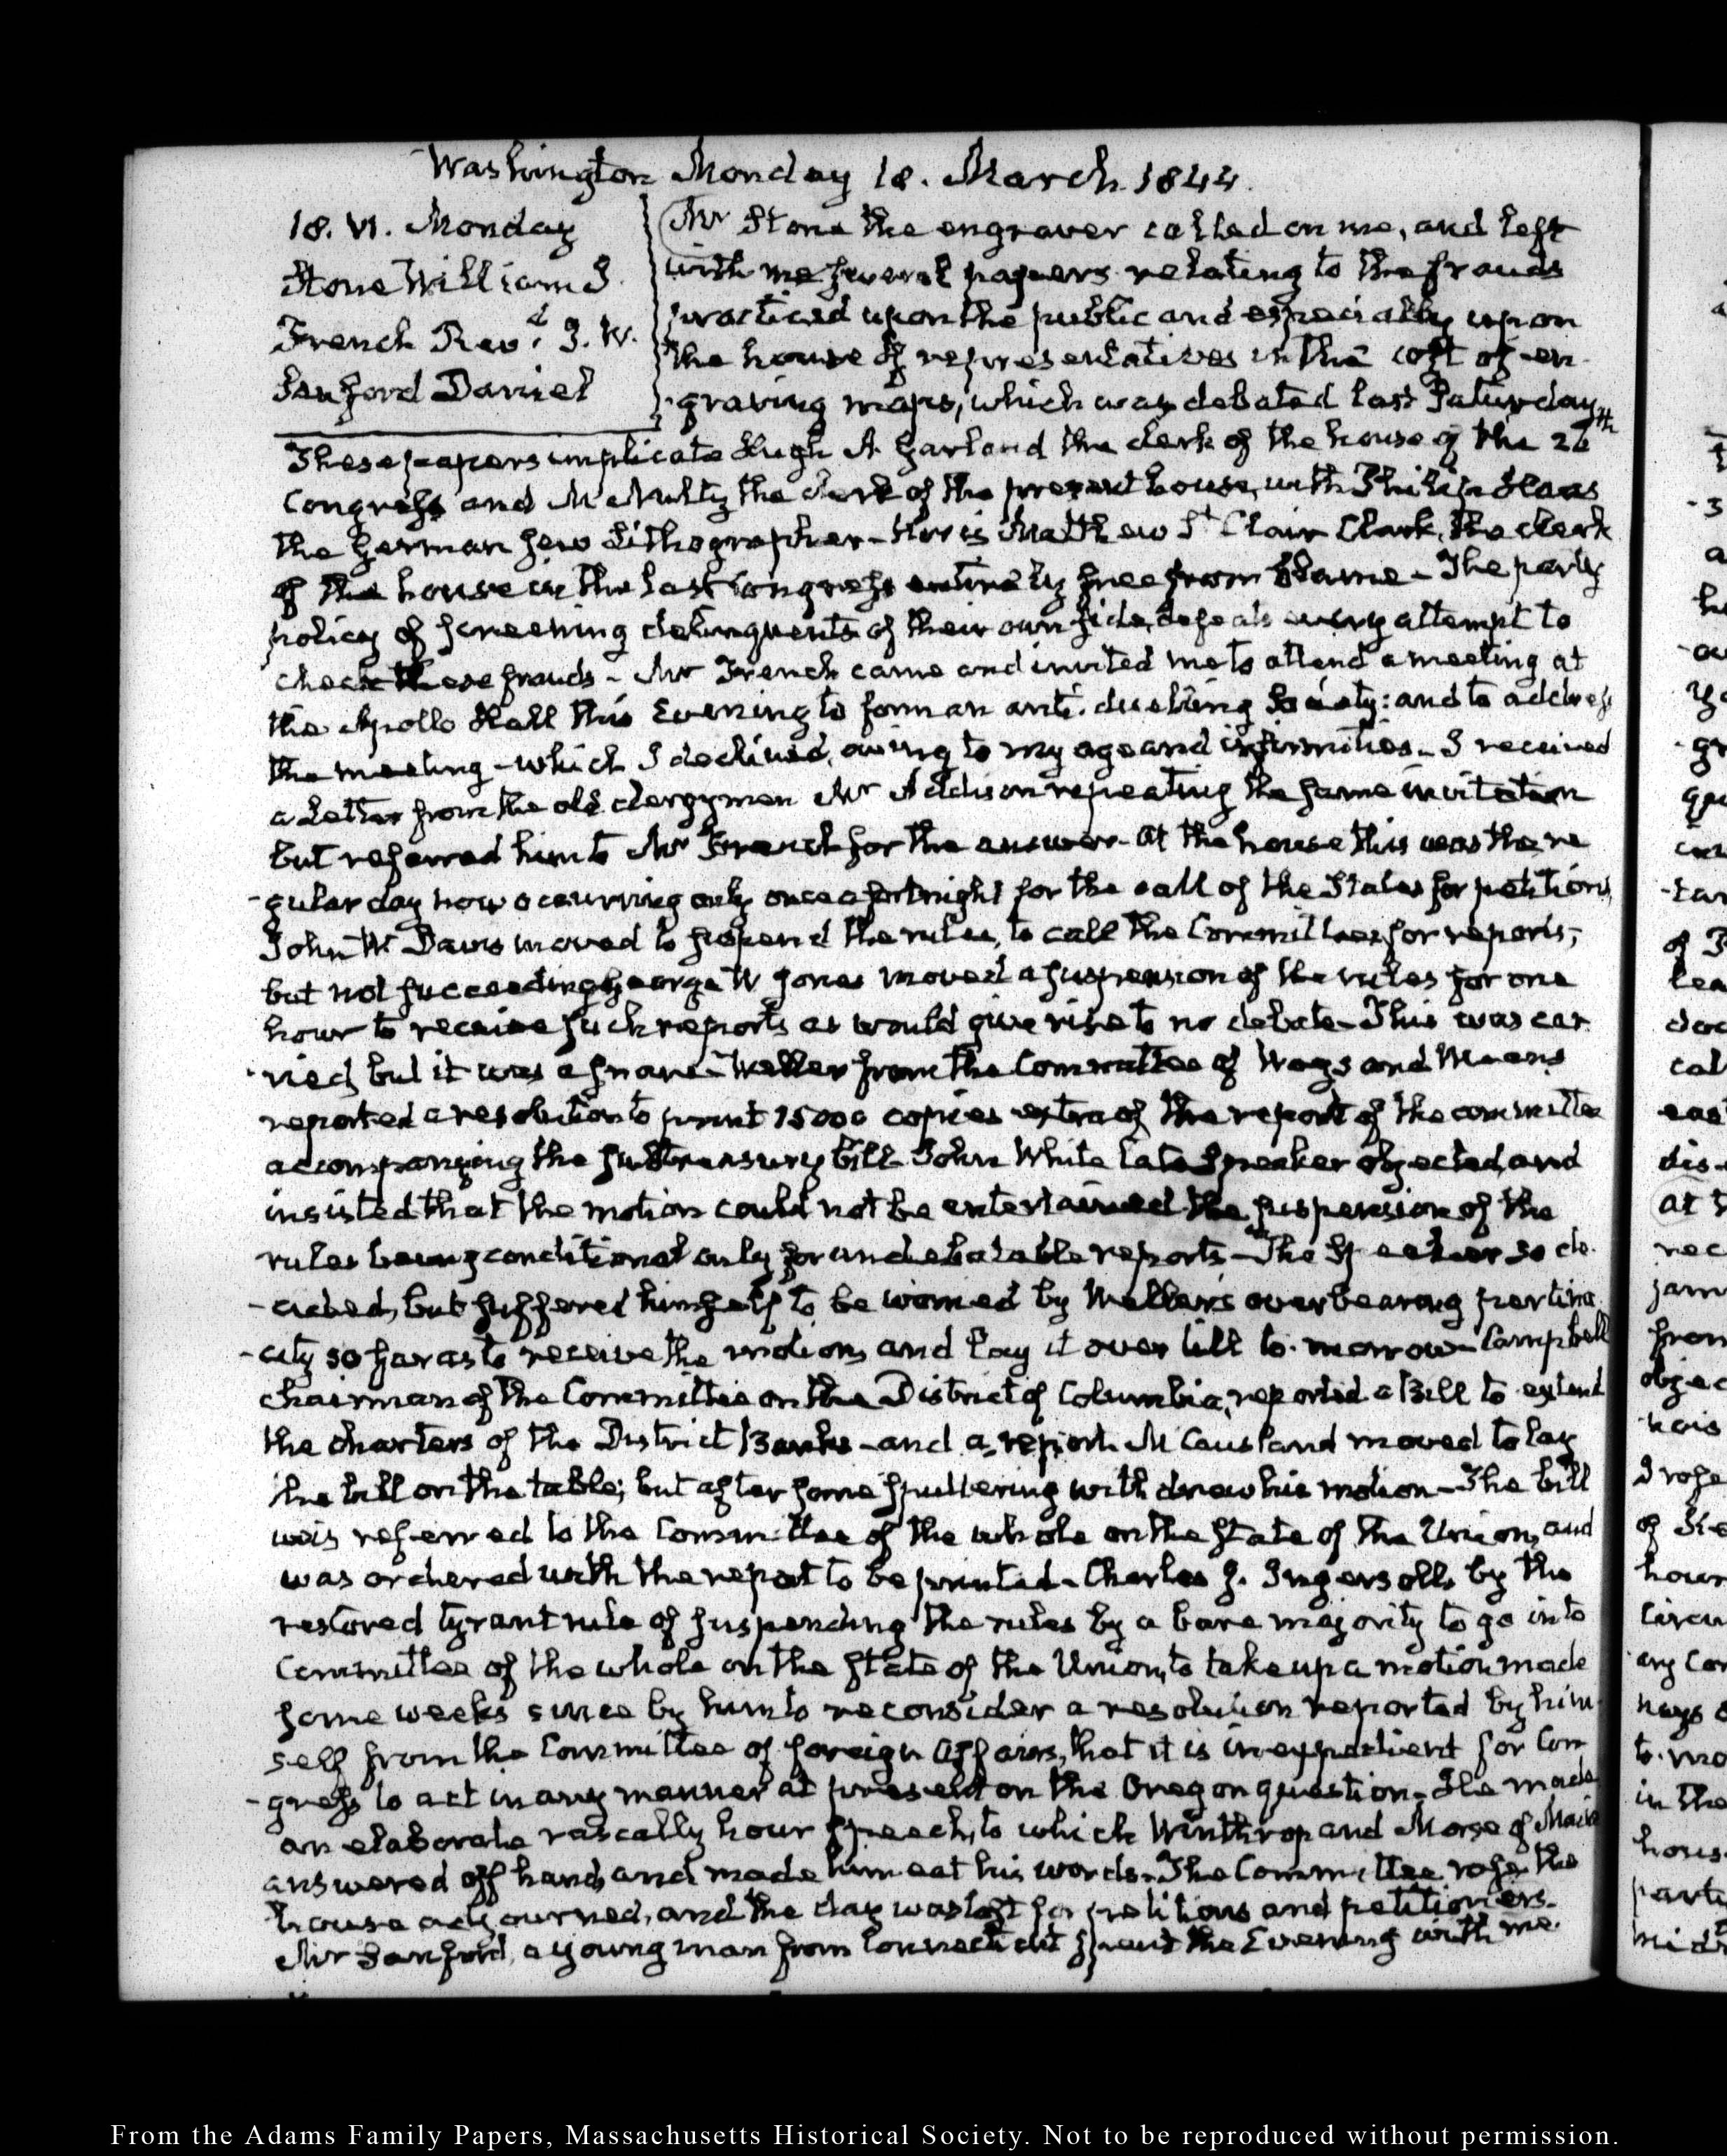 Washington Monday 18. March 1844.
18. VI. Monday
Stone William J.
French Revd. J. W.
Sanford Daniel
Mr Stone the engraver called on me, and left
with me several papers relating to the frauds
practiced upon the public and especially upon
the house of representatives in the cost of en-
-graving maps, which was debated last Saturday
These papers implicate Hugh A. Garland the clerk of the house of the 26th
Congress and McNulty the clerk of the present house, with Philip Haas
the German Jew Lithographer - Nor is Matthew St Clair Clark, the clerk
of the house in the last Congress entirely free from blame - The party
policy of screening delinquents of their own side, defeats every attempt to
check these frauds - Mr French came and invited me to attend a meeting at
the Apollo Hall this Evening to form an anti-duelling Society: and to address
the meeting - which I declined, owing to my age and infirmities - I received
a Letter from the old clergyman Mr Addison repeating the same invitation
but referred him to Mr French for the answer - At the house this was the re
-gular day now occurring only once a fortnight for the call of the States for petitions,
John W. Davis moved to suspend the rules, to call the Committees for reports;
but not succeeding George W Jones moved a suspension of the rules for one
hour to receive such reports as would give rise to no debate - This was car
-ried, but it was a snare - Weller from the Committee of Ways and Means
reported a resolution to print 15000 copies extra of the report of the committee
accompanying the Subtreasury bill - John White late Speaker objected, and
insisted that the motion could not be entertained the suspension of the
rules being conditional only for undebatable reports - The Speaker so de-
-cided, but suffered himself to be worried by Weller's overbearing pertina
-city so far as to receive the motion, and lay it over till to-morrow - Campbell
chairman of the Committee on the District of Columbia, reported a Bill to extend
the charters of the District Banks - and a report. McCausland moved to lay
the bill on the table; but after some sputtering withdrew his motion - The bill
was referred to the Committee of the whole on the State of the Union, and
was ordered with the report to be printed - Charles J. Ingersoll, by the
restored tyrant rule of suspending the rules by a bare majority to go into
Committee of the whole on the State of the Union, to take up a motion made
some weeks since by him to reconsider a resolution reported by him-
self from the Committee of foreign Affairs, that it is inexpedient for Con
-gress to act in any manner at present on the Oregon question - He made
an elaborate rascally hour speech, to which Winthrop and Morse of Maine
answered off hand, and made him eat his words - The Committee rose. the
house adjourned, and the day was lost for petitions and petitioners.
Mr Sanford, a young man from Connecticut spent the Evening with me.
From the Adams Family Papers, Massachusetts Historical Society. Not to be reproduced without permission.